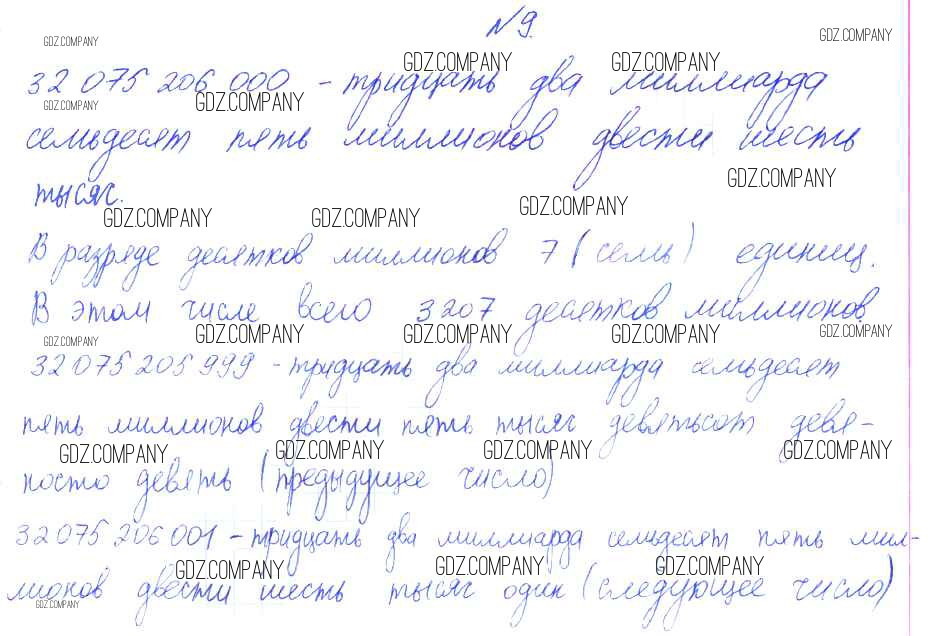 №9.
GDZ.COMPANY GDZ.COMPANY
GDZ.COMPANY GDZ.COMPANY
32 075 206 000 - тридцать два миллиарда
GDZ.COMPANY GDZ.COMPANY
семьдесят пять миллионов двести шесть
GDZ.COMPANY
тысяч.
GDZ.COMPANY GDZ.COMPANY GDZ.COMPANY
В разряде десятков миллионов 7 (семь) единиц.
В этом числе всего 3207 десятков миллионов.
GDZ.COMPANY GDZ.COMPANY GDZ.COMPANY GDZ.COMPANY GDZ.COMPANY
32 075 205 999 - тридцать два миллиарда семьдесят
пять миллионов двести пять тысяч девятьсот девя-
GDZ.COMPANY GDZ.COMPANY GDZ.COMPANY GDZ.COMPANY
носто девять (предыдущее число)
32 075 206 001 - тридцать два миллиарда семьдесят пять мил-
GDZ.COMPANY GDZ.COMPANY GDZ.COMPANY
лионов двести шесть тысяч один (следующее число)
GDZ.COMPANY